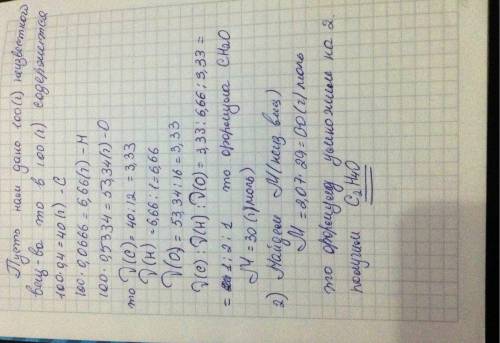 Пусть нам дано 100(г) неизвестного
вещ-ва то в 100(г) содержится
100·0,4 = 40(г) - С
100·0,0666 = 6,66(г) - Н
100·0,5334 = 53,34(г) - О
то ν(С) = 40:12 = 3,33
ν(Н) = 6,66:1 = 6,66
ν(О) = 53,34:16 = 3,33
ν(С):ν(Н):ν(О) = 3,33:6,66:3,33 =
= 1:2:1 то формула CH2O
M = 30(г/моль)
2) Найдем M(неиз вещ)
M = 2,07·29 = 60(г/моль)
то формулу умножим на 2
получим C2H4O